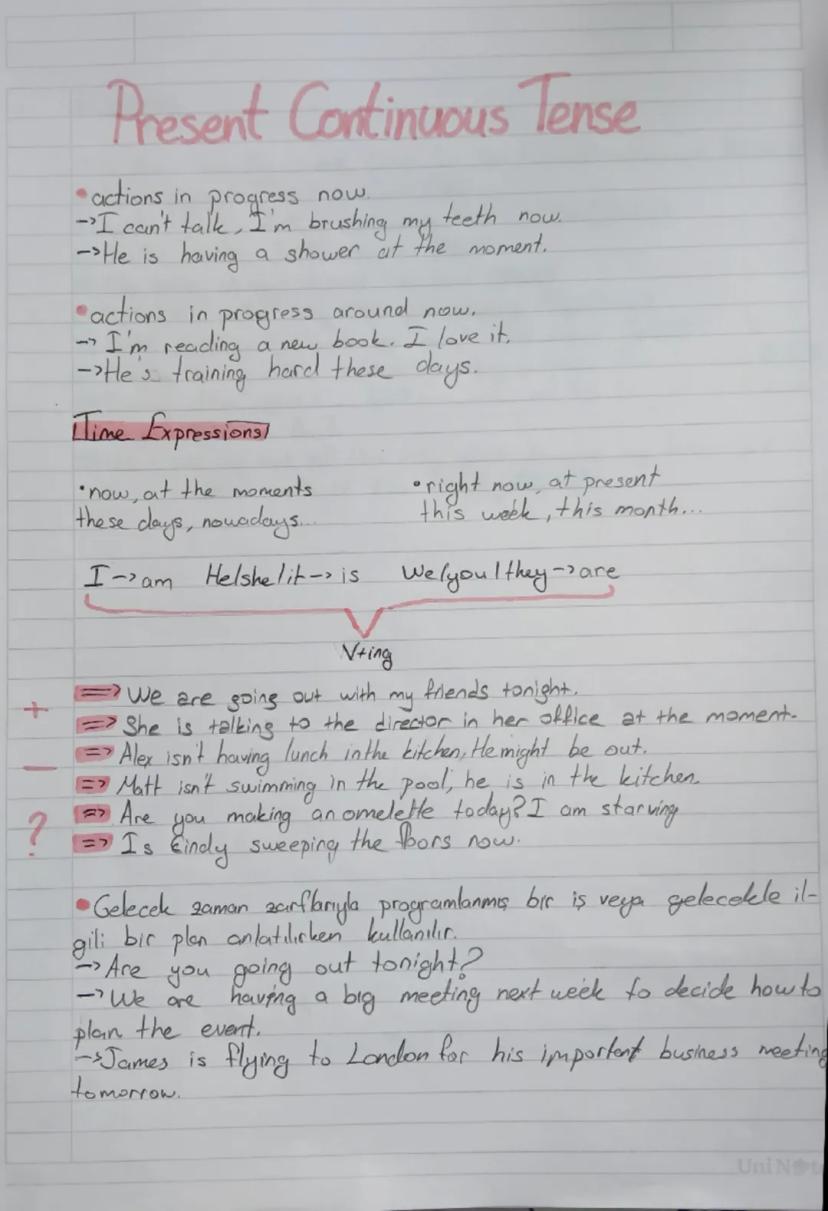 Present Continuous Tense
• actions in progress now.
-> I can't talk, I'm brushing my teeth now.
-> He is having a shower at the moment.
• actions in progress around now.
-> I'm reading a new book. I love it.
-> He's training hard these days.
Time Expressions
• now, at the moments
these days, nowadays...
• right now, at present
this week, this month...
I -> am He/she/it -> is We/you/they -> are
V+ing
+ => We are going out with my friends tonight.
=> She is talking to the director in her office at the moment.
- => Alex isn't having lunch in the kitchen, He might be out.
=> Matt isn't swimming in the pool, he is in the kitchen.
? => Are you making an omelette today? I am starving
=> Is Cindy sweeping the floors now.
• Gelecek zaman zarflarıyla programlanmış bir iş veya gelecekle il-
gili bir plan anlatılırken kullanılır.
-> Are you going out tonight?
-> We are having a big meeting next week to decide how to
plan the event.
-> James is flying to London for his important business meeting
tomorrow.